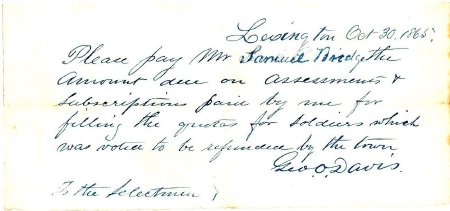 Lexington Oct 30. 1865.
Please pay Mr Samuel Bridge the
Amount due on Assessments &
Subscriptions paid by me for
filling the quotas for Soldiers which
was voted to be refunded by the town
Geo. O. Davis.
To the Selectmen